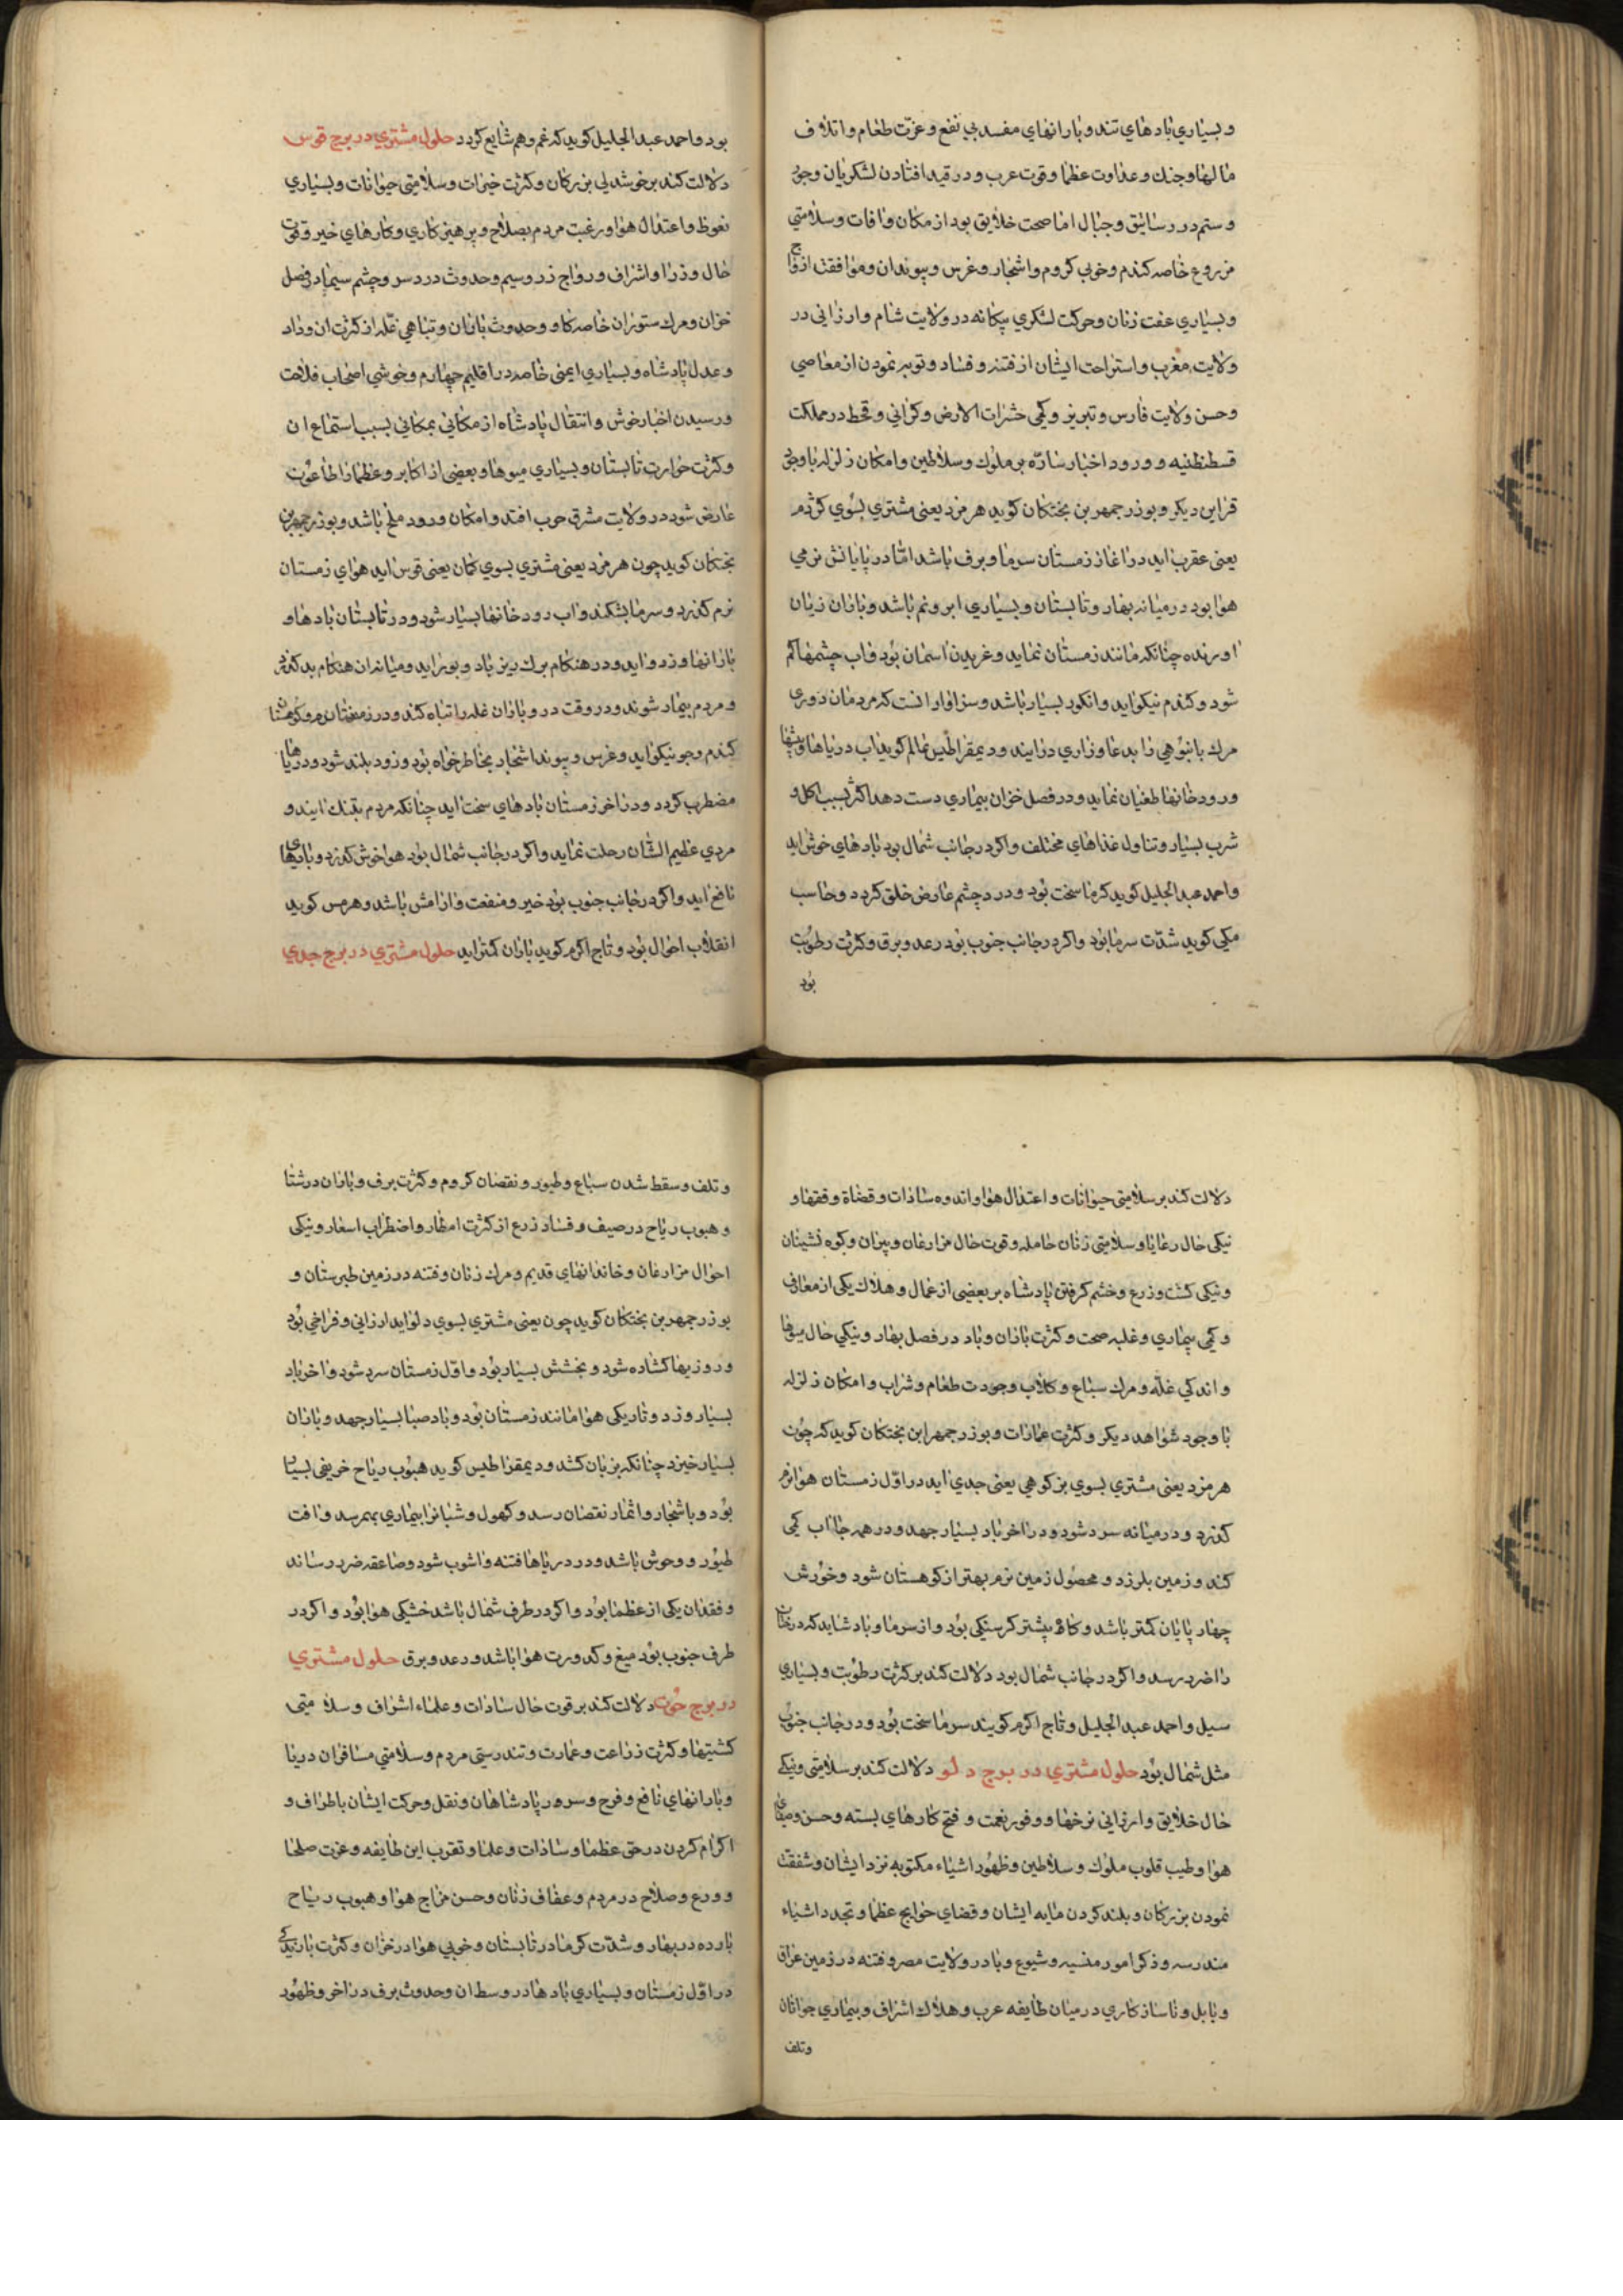 و بسیاری بادهای تند و بارانهای مفسد بی نفع و عزّت طعام و اتلاف
مالها و جنك و عداوت عظما و قوت عرب و در قید افتادن لشکریان وجور
و ستم در رساتیق و جبال اما صحت خلایق بود از مکان و افات و سلامتی
مزروع خاصه کندم و خوبی کروم و اشجار و غرس و پیوندان و موافقت ازواج
و بسیاری عفت زنان و حرکت لشکری بیکانه در ولایت شام و ارزانی در
ولایت مغرب و استراحت ایشان از فتنه و فساد و توبه نمودن از معاصی
وحسن ولایت فارس و تبریز و کمی حشرات الارض و کرانی و قحط در مملکت
قسطنطنیه و ورود اخبار سارّه بر ملوك و سلاطین و امکان زلزله با وجود
قراین دیکر و بوذرجمهر بن بختکان کوید هرمزد یعنی مشتری بسوی کژدم
یعنی عقرب اید در اغاز زمستان سرما و برف باشد امّا در پایانش نرمی
هوا بود در میانه بهار و تابستان و بسیاری ابر و نم باشد و باران زیان
اورنده چنانکه مانند زمستان نماید و غریدن اسمان بود و اب چشمها کم
شود و کندم نیکو اید و انکور بسیار باشد و سزاوار انست که مردمان دوری
مرك بانبوهی را بدعا و زاری درایند و دیمقراطیس نمالم کوید اب دریاها و چشمها
و رودخانها طغیان نماید و در فصل خزان بیماری دست دهد اکثر بسبب اکل و
شرب بسیار و تناول غذاهای مختلف و اکر در جانب شمال بود بادهای خوش اید
واحمد عبدالجلیل کوید کرما سخت بود و درد چشم عارض خلق کردد و حاسب
مکی کوید شدّت سرما بود و اکر در جانب جنوب بود رعد و برق و کثرت رطوبت
بود
بود واحمد عبدالجلیل کوید که غم و هم شایع کردد حلول مشتری در برج قوس
دلالت کند بر خوشدلی بزرکان و کثرت خیرات و سلامتی حیوانات و بسیاری
نعوظ و اعتدال هوا و رغبت مردم بصلاح و پرهیزکاری و کارهای خیر و قوت
حال وزرا و اشراف و رواج زر و سیم و حدوث درد سر و چشم سیما در فصل
خزان و مرك ستوران خاصه کاو و حدوث باران و تباهی غلّه از کثرت ان و داد
و عدل پادشاه و بسیاری ایمنی خاصه در اقلیم چهارم و خوشی اصحاب فلاحت
و رسیدن اخبار خوش و انتقال پادشاه از مکانی بمکانی بسبب استماع ان
و کثرت حرارت تابستان و بسیاری میوها و بعضی از اکابر و عظما را طاعون
عارض شود در ولایت مشرق حرب افتد و امکان ورود ملخ باشد و بوذرجمهر بن
بختکان کوید چون هرمزد یعنی مشتری بسوی کمان یعنی قوس اید هوای زمستان
نرم کذرد و سرما بشکند و اب رودخانها بسیار شود و در تابستان بادها و
بارانها و زد و اید و در هنکام برك ریز باد و بوران اید و میانه ان هنکام بد کذرد
و مردم بیمار شوند و در وقت درو باران غله را تباه کند و در زمستان
کندم و جو نیکو اید و غرس و پیوند اشجار بخاطرخواه بود و زود بلند شود و دریاها
مضطرب کردد و در اخر زمستان بادهای سخت اید چنانکه مردم بتنك ایند و
مردی عظیم الشّان رحلت نماید و اکر در جانب شمال بود هوا خوش کذرد و بادهای
نافع اید و اکر در جانب جنوب بود خیر و منفعت و ارامش باشد و هرمس کوید
انقلاب احوال بود و تاج اکرم کوید باران کمتر اید حلول مشتری در برج جدی
دلالت کند بر سلامتی حیوانات و اعتدال هوا و اندوه سادات و قضاة و فقها و
نیکی حال رعایا و سلامتی زنان حامله و قوت حال مزارعان و پیران و کوه نشینان
و نیکی کشت و زرع و خشم کرفتن پادشاه بر بعضی از عمال و هلاك یکی از معارف
و کمی بیماری و غلبه صحت و کثرت باران و باد در فصل بهار و نیکی حال میوها
و اندکی غلّه و مرك سباع و کلاب وجودت طعام و شراب و امکان زلزله
با وجود شواهد دیکر و کثرت عمارات و بوذرجمهر ابن بختکان کوید که چون
هرمزد یعنی مشتری بسوی بز کوهی یعنی جدی اید در اوّل زمستان هوا نرم
کذرد و در میانه سرد شود و در اخر باد بسیار جهد و در همه جا اب کمی
کند و زمین بلرزد و محصول زمین نرم بهتر از کوهستان شود و خورش
چهارپایان کمتر باشد و کاه بیشتر کرسنکی بود و از سرما و باد شاید که درختان
را ضرر رسد و اکر در جانب شمال بود دلالت کند بر کثرت رطوبت و بسیاری
سیل واحمد عبدالجلیل و تاج اکرم کویند سرما سخت بود و در جانب جنوب
مثل شمال بود حلول مشتری در برج دلو دلالت کند بر سلامتی و نیکی
حال خلایق و ارزانی نرخها و وفور نعمت و فتح کارهای بسته و حسن و صفای
هوا و طیب قلوب ملوك و سلاطین و ظهور اشیاء مکتوبه نزد ایشان و شفقت
نمودن بزرکان و بلند کردن مایه ایشان و قضای حوایج عظما و تجدد اشیاء
مندرسه و ذکر امور منسیه و شیوع وبا در ولایت مصر و فتنه در زمین عراق
و بابل و ناسازکاری در میان طایفه عرب و هلاك اشراف و بیماری جوانان
وتلف
و تلف و سقط شدن سباع و طیور و نقصان کروم و کثرت برف و باران در شتا
و هبوب ریاح در صیف و فساد زرع از کثرت امطار و اضطراب اسعار و نیکی
احوال مزارعان و خاندانهای قدیم و مرك زنان و فتنه در زمین طبرستان و
بوذرجمهر بن بختکان کوید چون یعنی مشتری بسوی دلو اید ارزانی و فراخی بود
و روزیها کشاده شود و بخشش بسیار بود و اوّل زمستان سرد شود و اخر باد
بسیار وزد و تاریکی هوا مانند زمستان بود و باد صبا بسیار جهد و باران
بسیار خیزد چنانکه بزیان کشد و دیمقراطیس کوید هبوب ریاح خریفی بسیار
بود و باشجار و اثمار نقصان رسد و کهول و شبانرا بیماری بهم رسد و افت
طیور و وحوش باشد و در دریاها فتنه و اشوب شود و صاعقه ضرر رساند
و فقدان یکی از عظما بود و اکر در طرف شمال باشد خشکی هوا بود و اکر در
طرف جنوب بود میغ و کدورت هوا باشد و رعد و برق حلول مشتری
در برج حوت دلالت کند بر قوت حال سادات و علماء اشراف و سلامتی
کشتیها و کثرت زراعت و عمارت و تندرستی مردم و سلامتی مسافران دریا
و بارانهای نافع و فرح و سرور پادشاهان و نقل و حرکت ایشان باطراف و
اکرام کردن در حق عظما و سادات و علما و تقرب این طایفه و عزت صلحا
و ورع و صلاح در مردم و عفاف زنان و حسن مزاج هوا و هبوب ریاح
بارده در بهار و شدّت کرما در تابستان و خوبی هوا در خزان و کثرت بارندکی
در اوّل زمستان و بسیاری بادها در وسط ان و حدوث برف در اخر و ظهور